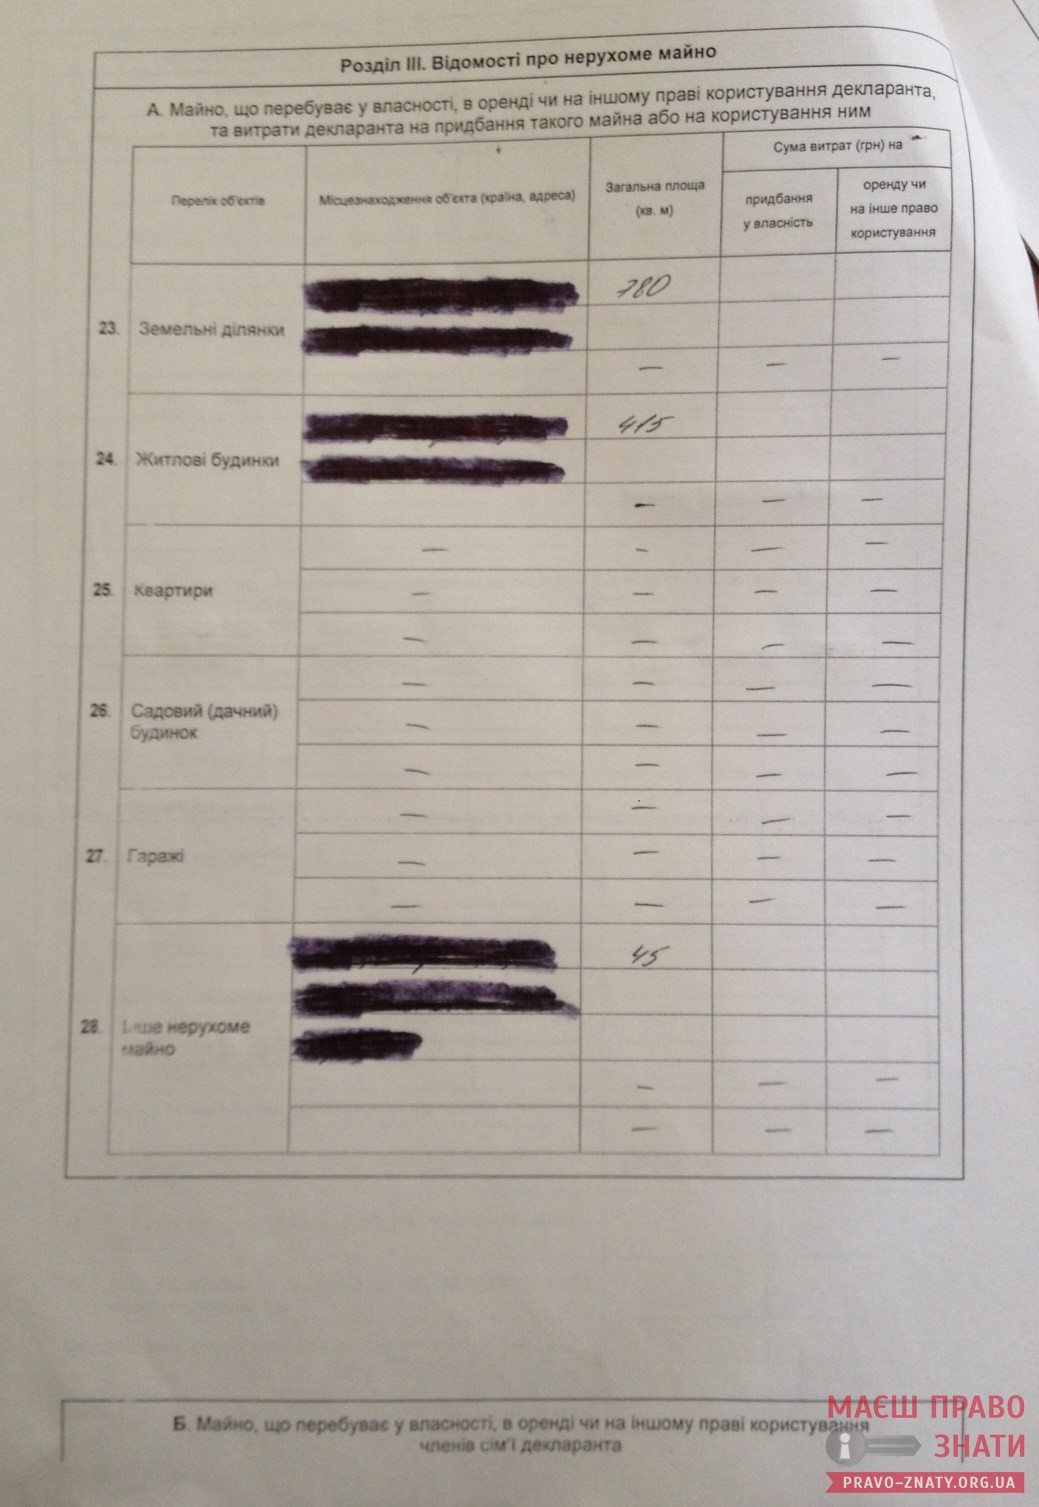 Розділ III. Відомості про нерухоме майно
А. Майно, що перебуває у власності, в оренді чи на іншому праві користування декларанта,
та витрати декларанта на придбання такого майна або на користування ним
Перелік об'єктів
Місцезнаходження об'єкта (країна, адреса)
Загальна площа
(кв. м)
Сума витрат (грн) на
придбання
у власність
оренду чи
на інше право
користування
780
23. Земельні ділянки
— — —
415
24. Житлові будинки
— — —
— — — —
25. Квартири — — — —
— — — —
— — — —
26. Садовий (дачний)
будинок
— — — —
— — — —
— — — —
27. Гаражі — — — —
— — — —
45
28. Інше нерухоме
майно
— — —
— — —
Б. Майно, що перебуває у власності, в оренді чи на іншому праві користування
членів сім'ї декларанта
МАЄШ ПРАВО
ЗНАТИ
PRAVO-ZNATY.ORG.UA